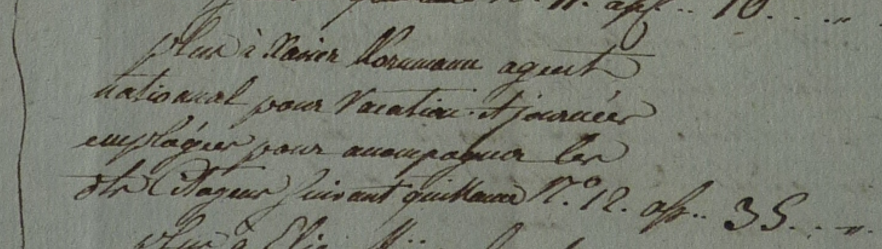 N.° 11. app.. 10. . „
plus à Xavier Norumann agent
national pour vacation et journées
emploÿées pour accompagner les
dts Citoyens suivant quittance N.° 12. app.. 35. . „.
plus à